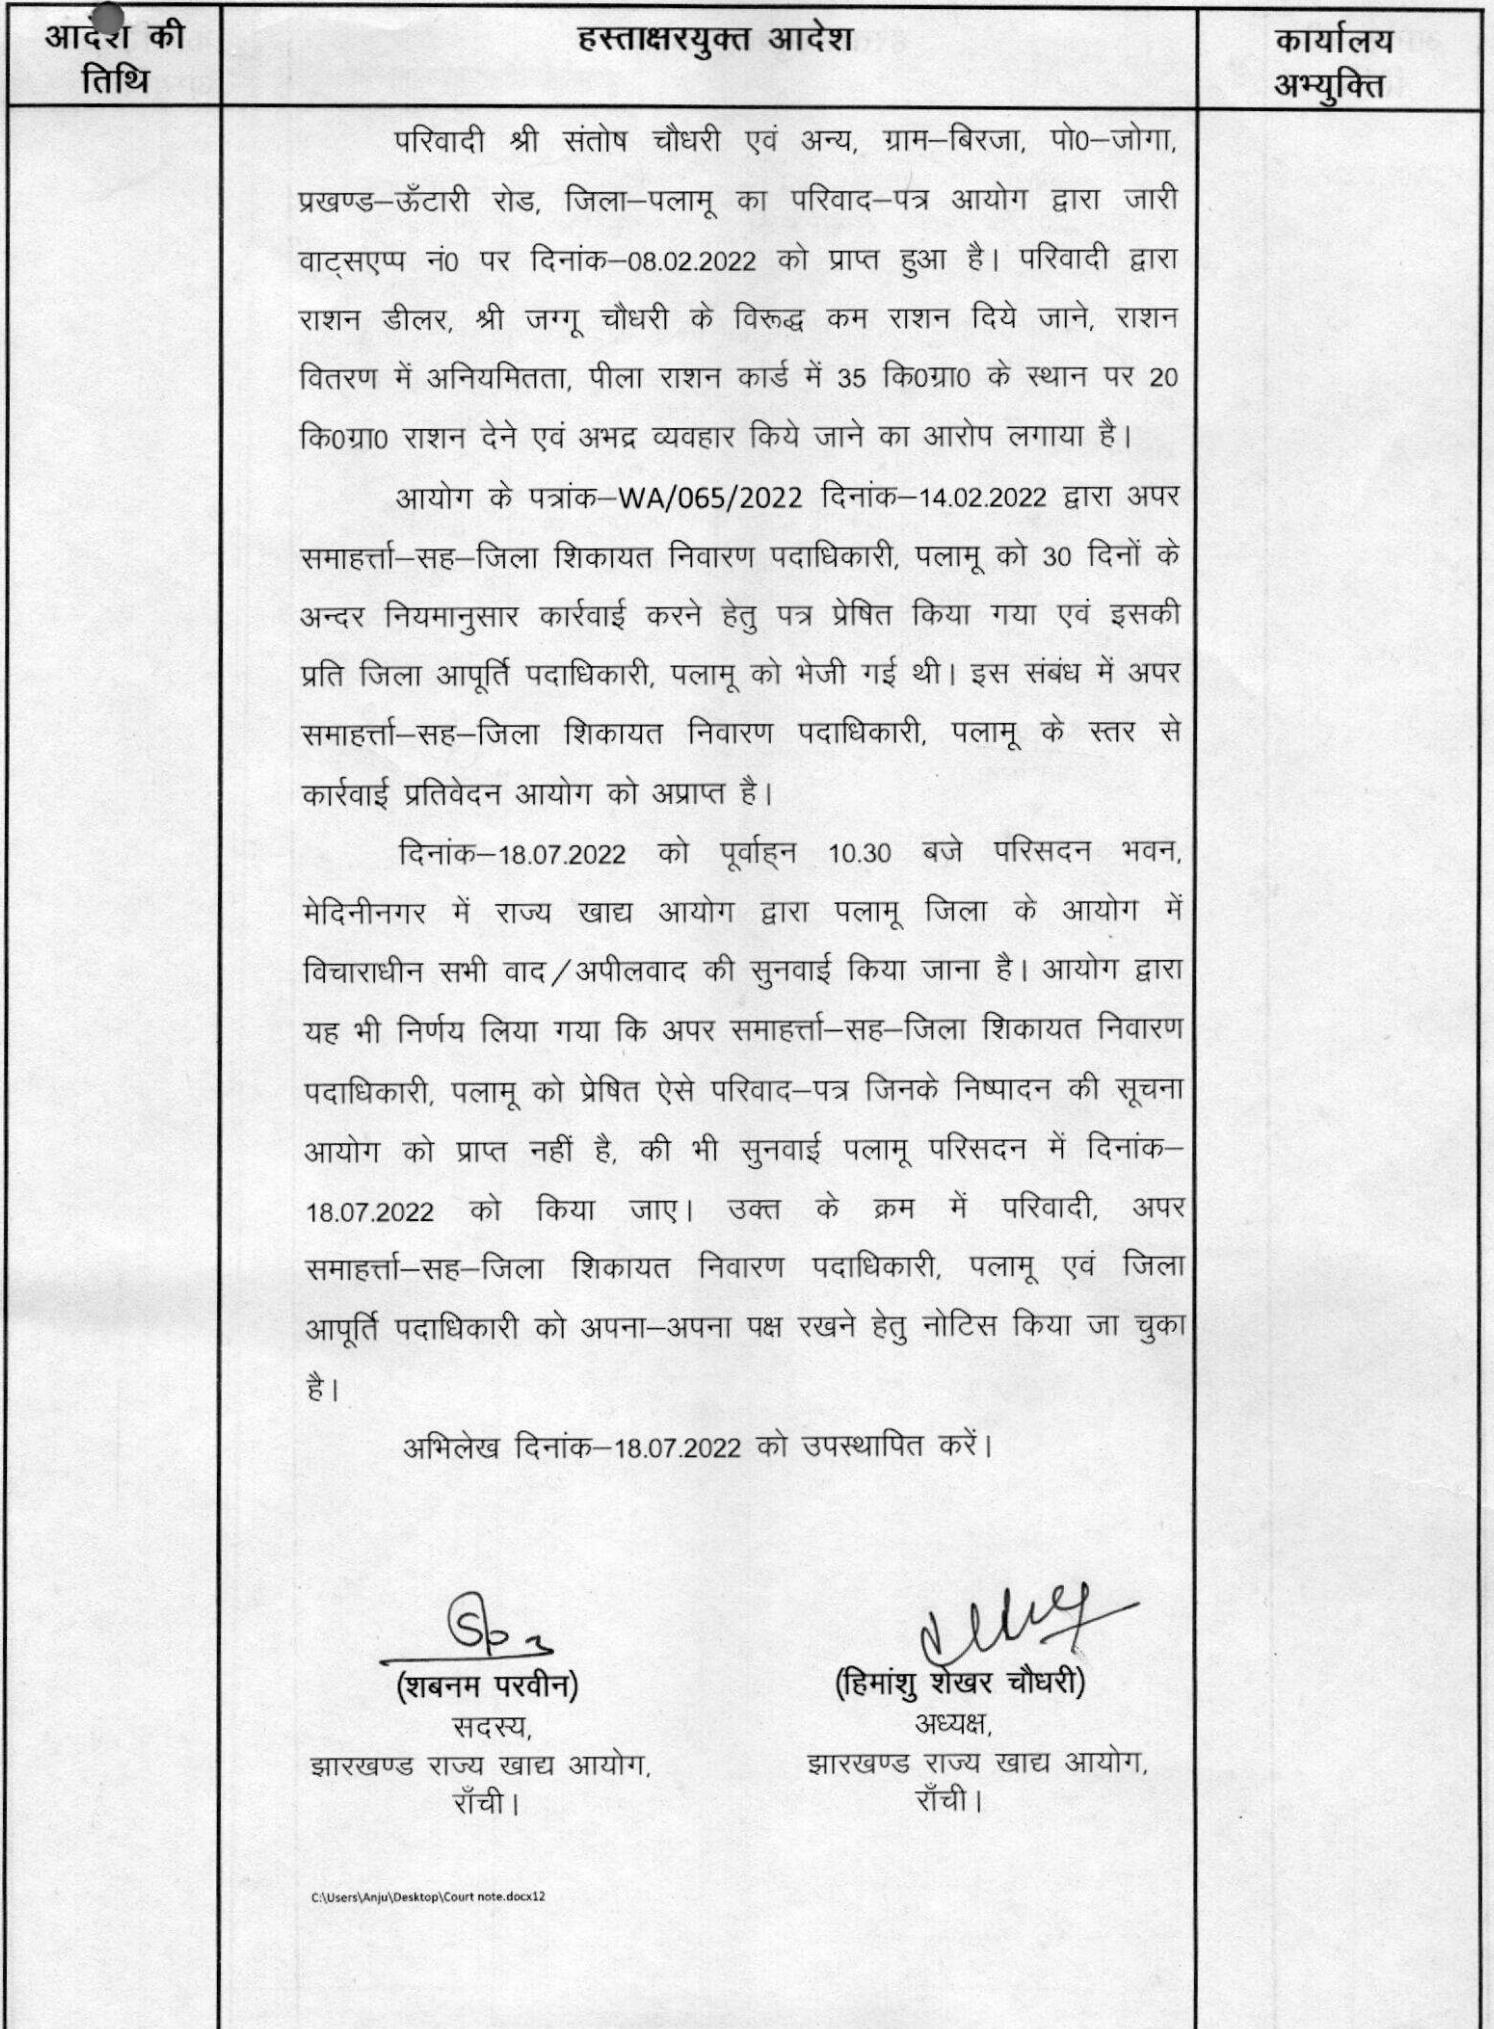 आदेश की
तिथि
हस्ताक्षरयुक्त आदेश
कार्यालय
अभ्युक्ति
परिवादी श्री संतोष चौधरी एवं अन्य, ग्राम–बिरजा, पो0–जोगा,
प्रखण्ड–ऊँटारी रोड, जिला–पलामू का परिवाद–पत्र आयोग द्वारा जारी
वाट्सएप्प नं0 पर दिनांक–08.02.2022 को प्राप्त हुआ है। परिवादी द्वारा
राशन डीलर, श्री जग्गू चौधरी के विरूद्ध कम राशन दिये जाने, राशन
वितरण में अनियमितता, पीला राशन कार्ड में 35 कि0ग्रा0 के स्थान पर 20
कि0ग्रा0 राशन देने एवं अभद्र व्यवहार किये जाने का आरोप लगाया है।
आयोग के पत्रांक–WA/065/2022 दिनांक–14.02.2022 द्वारा अपर
समाहर्त्ता–सह–जिला शिकायत निवारण पदाधिकारी, पलामू को 30 दिनों के
अन्दर नियमानुसार कार्रवाई करने हेतु पत्र प्रेषित किया गया एवं इसकी
प्रति जिला आपूर्ति पदाधिकारी, पलामू को भेजी गई थी। इस संबंध में अपर
समाहर्त्ता–सह–जिला शिकायत निवारण पदाधिकारी, पलामू के स्तर से
कार्रवाई प्रतिवेदन आयोग को अप्राप्त है।
दिनांक–18.07.2022 को पूर्वाह्न 10.30 बजे परिसदन भवन,
मेदिनीनगर में राज्य खाद्य आयोग द्वारा पलामू जिला के आयोग में
विचाराधीन सभी वाद/अपीलवाद की सुनवाई किया जाना है। आयोग द्वारा
यह भी निर्णय लिया गया कि अपर समाहर्त्ता–सह–जिला शिकायत निवारण
पदाधिकारी, पलामू को प्रेषित ऐसे परिवाद–पत्र जिनके निष्पादन की सूचना
आयोग को प्राप्त नहीं है, की भी सुनवाई पलामू परिसदन में दिनांक–
18.07.2022 को किया जाए। उक्त के क्रम में परिवादी, अपर
समाहर्त्ता–सह–जिला शिकायत निवारण पदाधिकारी, पलामू एवं जिला
आपूर्ति पदाधिकारी को अपना–अपना पक्ष रखने हेतु नोटिस किया जा चुका
है।
अभिलेख दिनांक–18.07.2022 को उपस्थापित करें।
(शबनम परवीन)
सदस्य,
झारखण्ड राज्य खाद्य आयोग,
राँची।
(हिमांशु शेखर चौधरी)
अध्यक्ष,
झारखण्ड राज्य खाद्य आयोग,
राँची।
C:\Users\Anju\Desktop\Court note.docx12